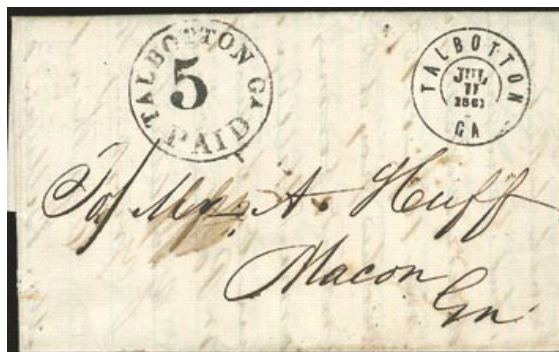 TALBOTTON GA
5
PAID
TALBOTTON
JUL
11
1861
GA
To Mr. A. Huff
Macon
Ga